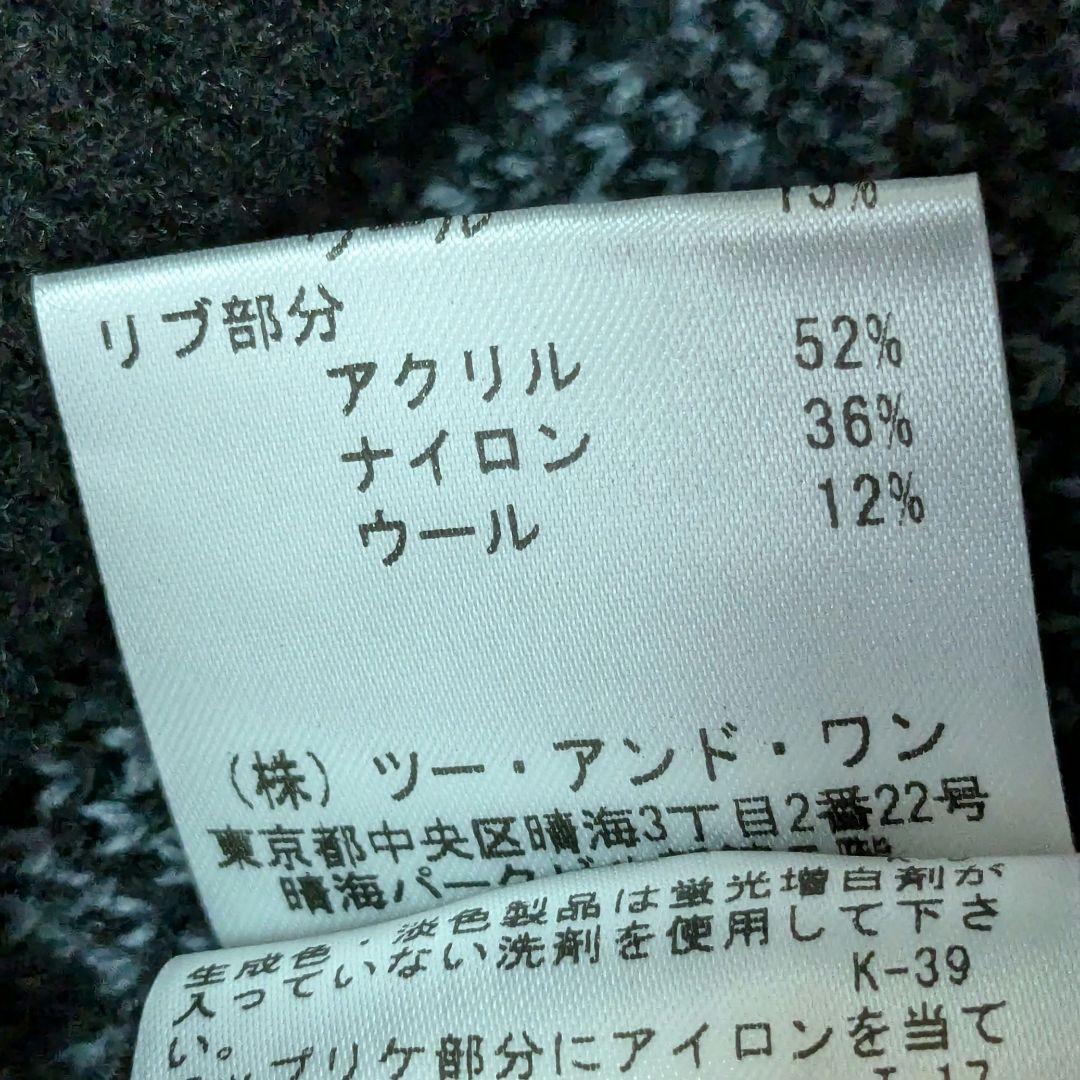 リブ部分
アクリル 52%
ナイロン 36%
ウール 12%
(株) ツー・アンド・ワン
東京都中央区晴海3丁目2番22号
晴海パーク
生成色・淡色製品は蛍光増白剤が
入っていない洗剤を使用して下さ
い。 K-39
プリケ部分にアイロンを当て